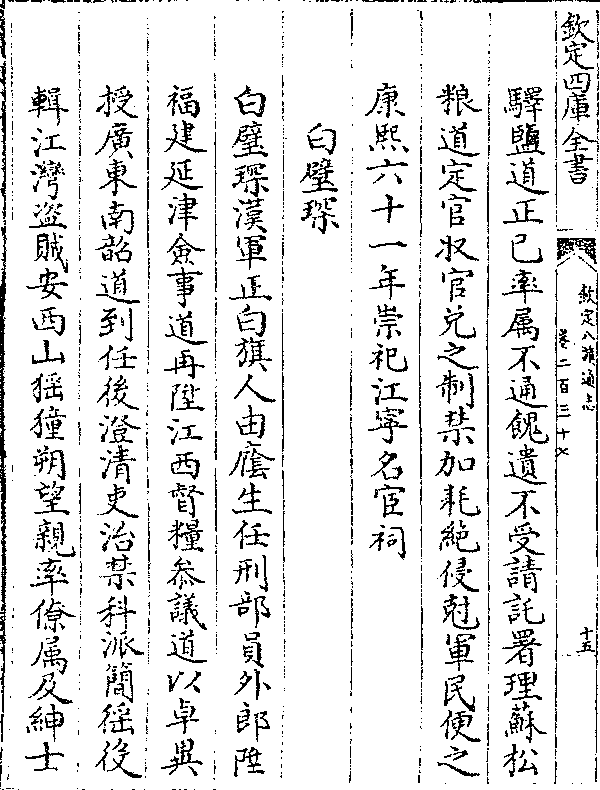 欽定四庫全書
欽定八旗通志
卷二百三十七
十五
驛鹽道正已率属不通餽遺不受請託署理蘇松
粮道定官收官兌之制禁加耗絶侵尅軍民便之
康熙六十一年崇祀江寧名宦祠
白璧琛
白璧琛漢軍正白旗人由廕生任刑部員外郎陞
福建延津僉事道再陞江西督糧叅議道以卓異
授廣東南韶道到任後澄清吏治禁科派簡徭役
輯江灣盗賊安西山猺獞朔望親率僚属及紳士